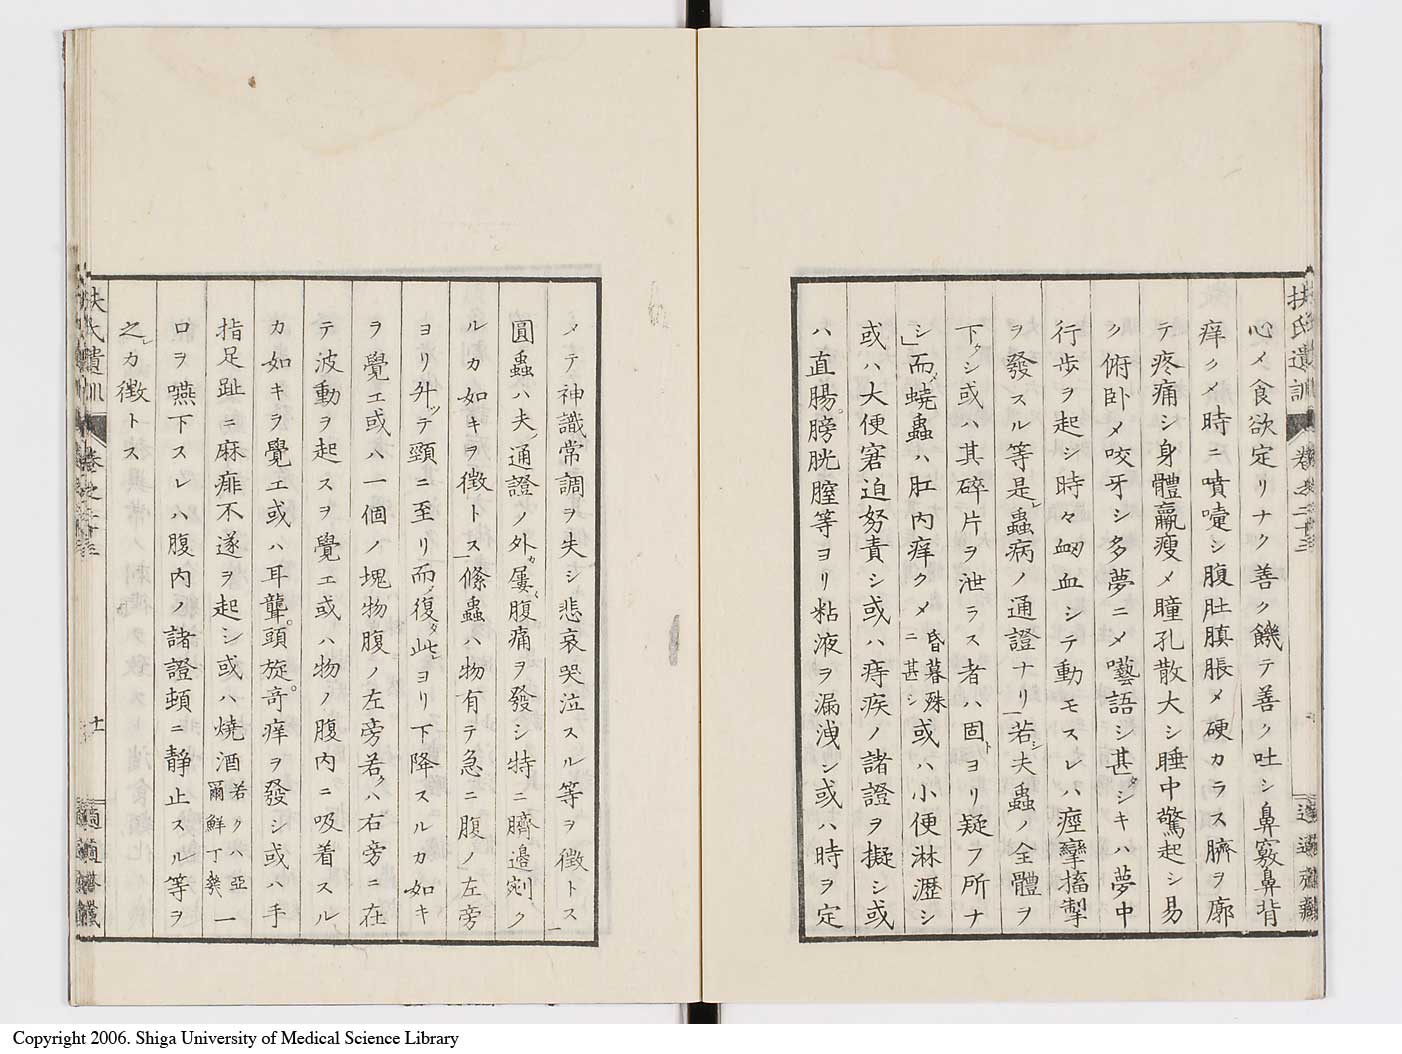 扶氏遺訓 卷之二十三
心メ食欲定リナク善ク饑テ善ク吐シ鼻竅鼻背
痒クメ時ニ噴嚔シ腹肚䐜脹メ硬カラス臍ヲ廓
テ疼痛シ身體羸瘦メ瞳孔散大シ睡中驚起シ易
ク俯臥メ咬牙シ多夢ニメ囈語シ甚タシキハ夢中
行歩ヲ起シ時々衂血シテ動モスレハ痙攣搐掣
ヲ發スル等是レ蟲病ノ通證ナリ若シ夫蟲ノ全體ヲ
下タシ或ハ其碎片ヲ泄ラス者ハ固トヨリ疑フ所ナ
シ」而メ蟯蟲ハ肛内痒クメ昏暮殊ニ甚シ或ハ小便淋瀝シ
或ハ大便窘迫努責シ或ハ痔疾ノ諸證ヲ擬シ或
ハ直腸。膀胱膣等ヨリ粘液ヲ漏洩シ或ハ時ヲ定
メテ神識常調ヲ失シ悲哀哭泣スル等ヲ徴トス
圓蟲ハ夫ノ通證ノ外カ屢〻腹痛ヲ發シ特ニ臍邉剜ク
ルカ如キヲ徴トス」絛蟲ハ物有テ急ニ腹ノ左旁
ヨリ升ツテ頸ニ至リ而メ復タ此ヨリ下降スルカ如キ
ヲ覺エ或ハ一個ノ塊物腹ノ左旁若クハ右旁ニ在
テ波動ヲ起スヲ覺エ或ハ物ノ腹内ニ吸着スル
カ如キヲ覺エ或ハ耳聾。頭旋。竒痒ヲ發シ或ハ手
指足趾ニ麻痺不遂ヲ起シ或ハ燒酒若クハ亞爾鮮丁幾一
口ヲ嚥下スレハ腹内ノ諸證頓ニ靜止スル等ヲ
之レカ徴トス
扶氏遺訓 卷之二十三 十一
Copyright 2006. Shiga University of Medical Science Library